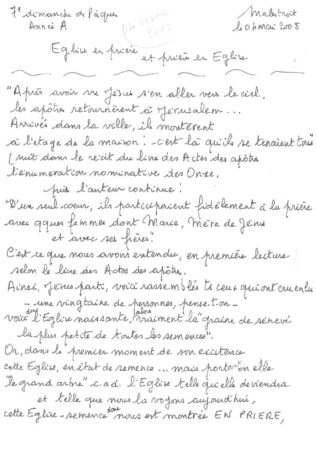 7e dimanche de Pâques
Année A
Malestroit
le 04 mai 2008
Eglise en prière
et prière en Eglise
"Après avoir vu Jésus s'en aller vers le ciel,
les apôtres retournèrent à Jérusalem...
Arrivés dans la ville, ils montèrent
à l'étage de la maison : c'est là qu'ils se tenaient tous"
(suit dans le récit du livre des Actes des apôtres
l'énumération nominative des Onze.
puis l'auteur continue :
"D'un seul cœur, ils participaient fidèlement à la prière
avec qques femmes dont Marie, Mère de Jésus
et avec ses frères".
C'est ce que nous avons entendu, en première lecture
selon le livre des Actes des apôtres.
Ainsi, Jésus parti, voici rassemblés ts ceux qui ont cru en lui
- une vingtaine de personnes, pense-t-on -
voici donc l'Eglise naissante, vraiment la "graine de sénevé
la plus petite de toutes les semences".
Or, dans le premier moment de son existence
cette Eglise, en état de semence ... mais portant en elle
"le grand arbre" c.a.d. l'Eglise telle qu'elle deviendra
et telle que nous la voyons aujourd'hui,
cette Eglise-semence donc nous est montrée EN PRIERE,